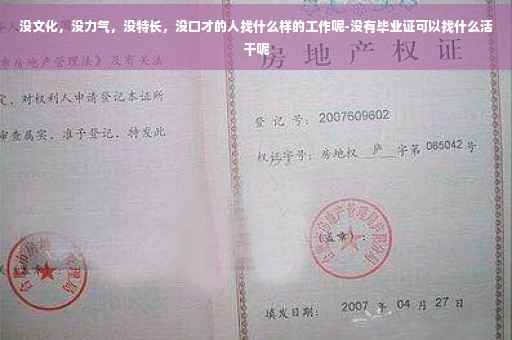 没文化，没力气，没特长，没口才的人找什么样的工作呢-没有毕业证可以找什么活
干呢
房地产权
房地产管理法》及有关法
定，对权利人申请登记本证所
审查属实，准予登记，特发此
登 记 号：2007609602
权证字号：房地权 庐 字第 065042 号
(盖章)：
填发日期： 2007 年 04 月 27 日